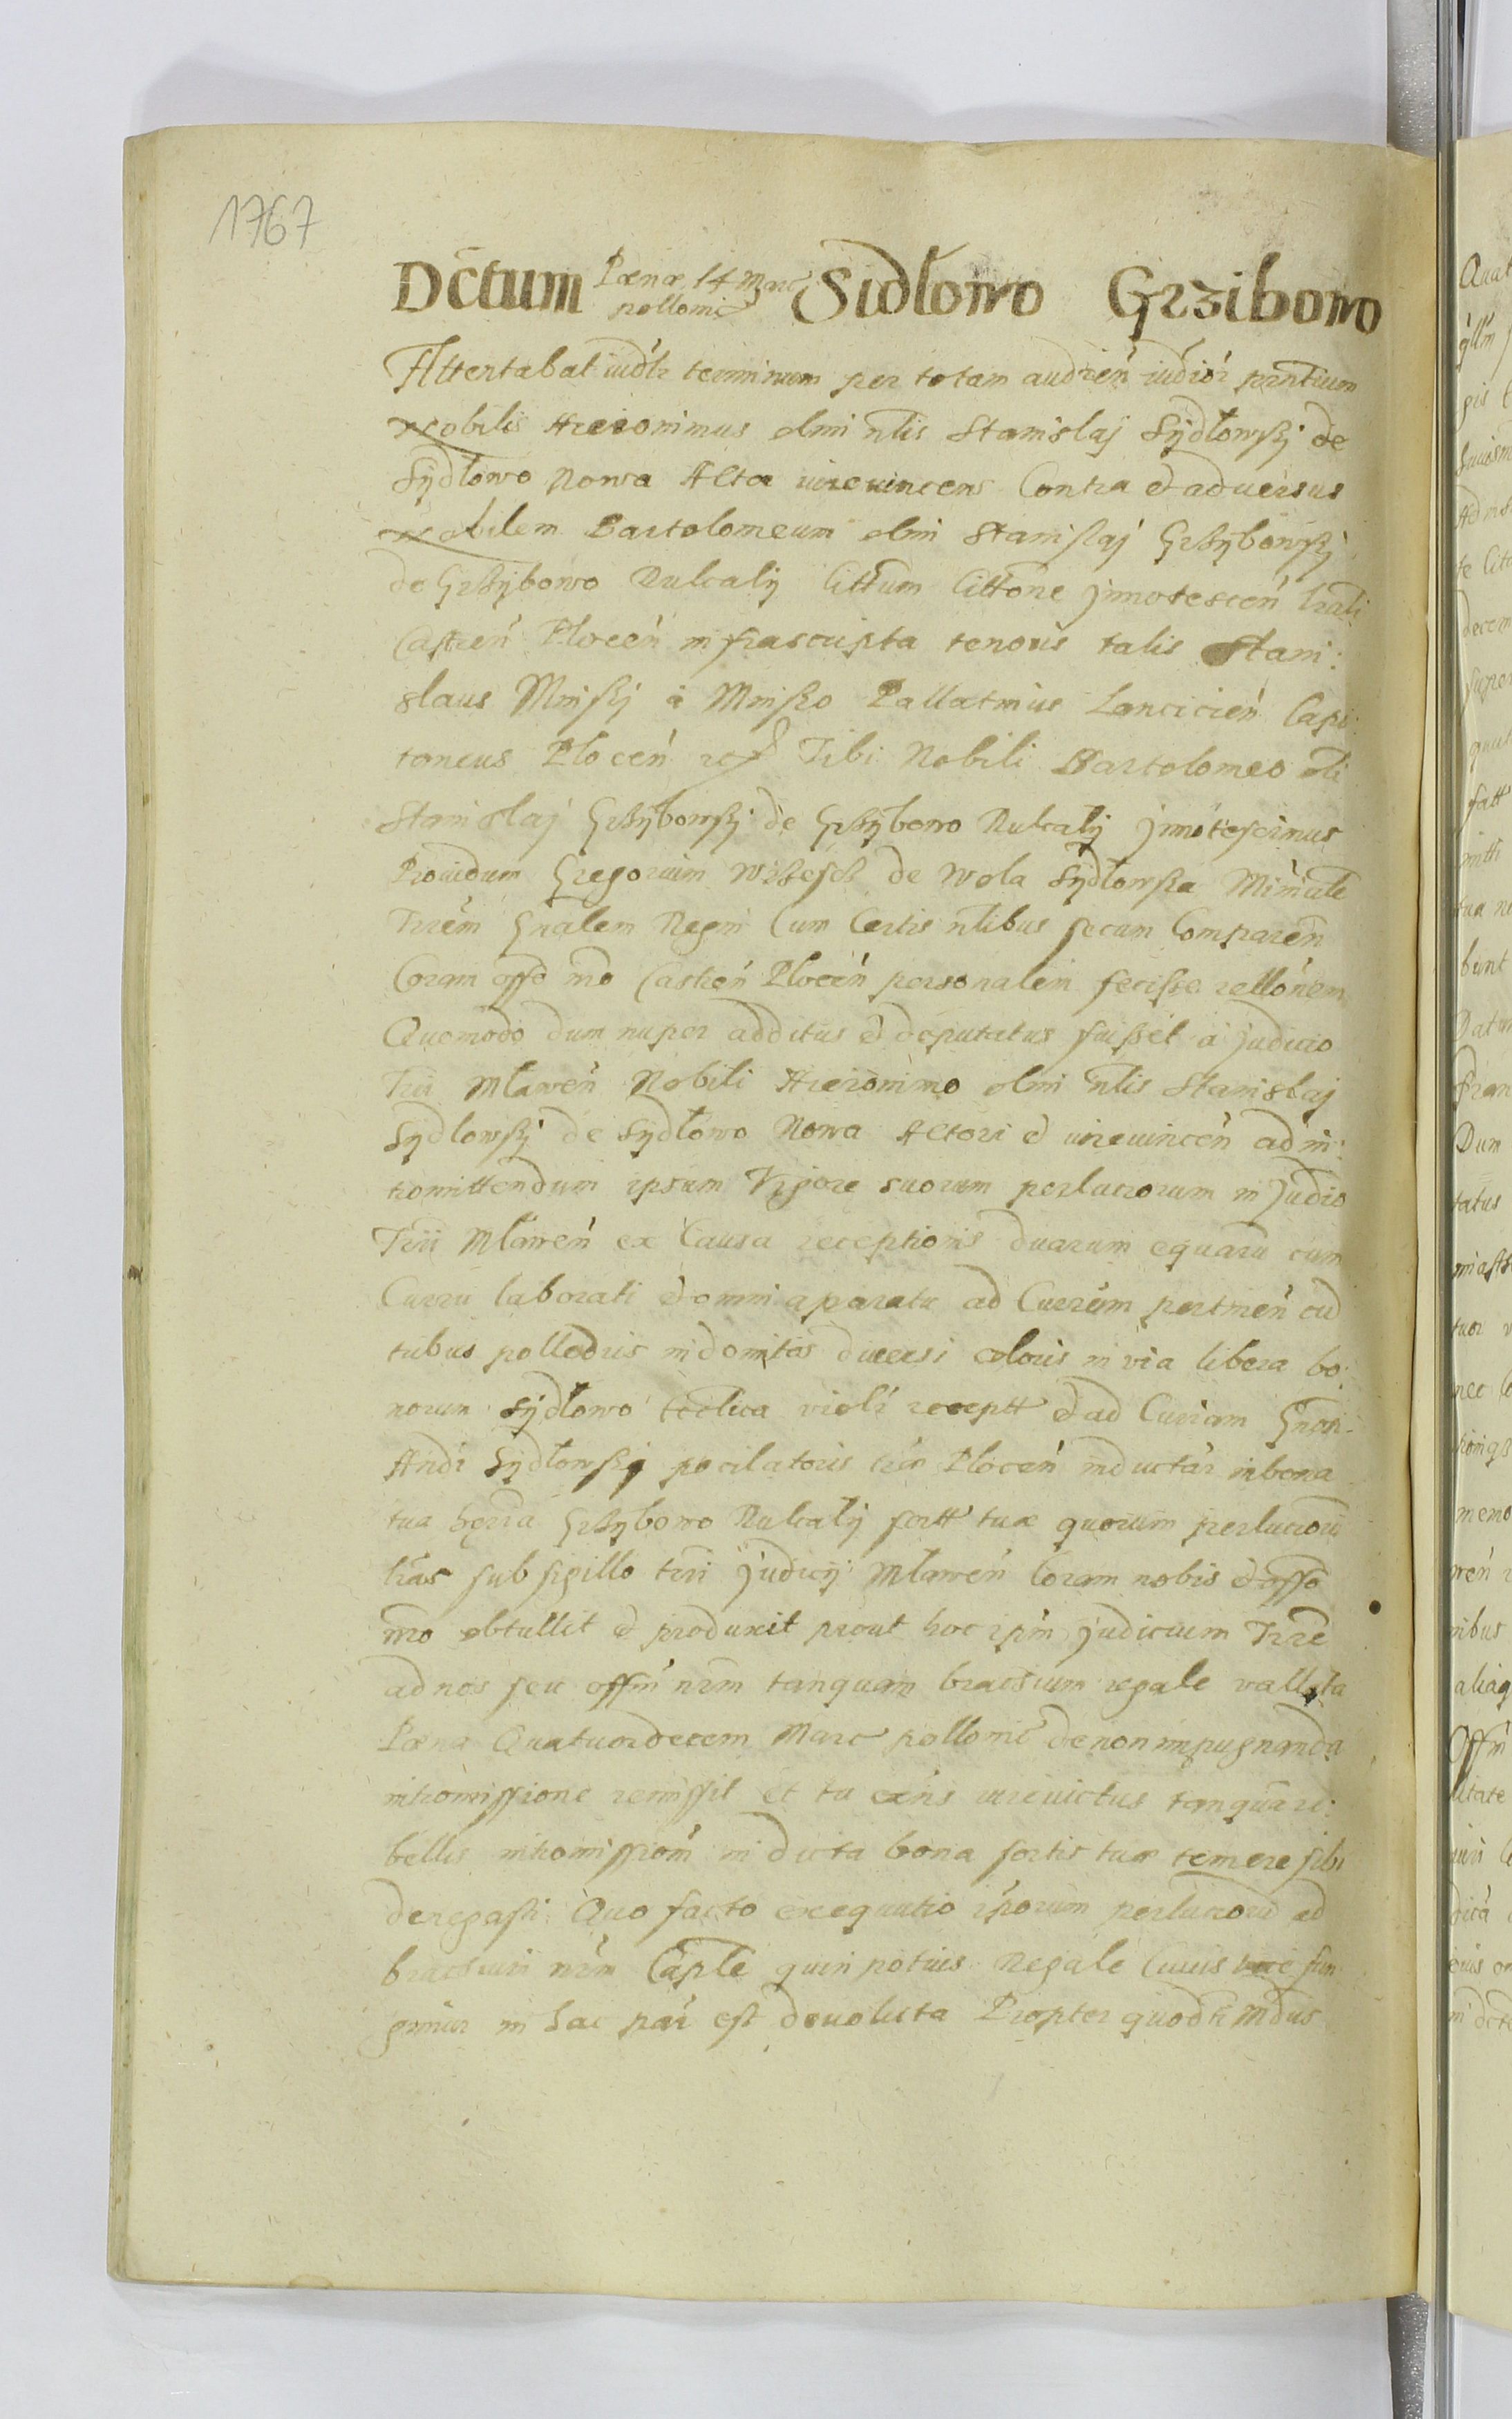 1767
Dctum Pœna 14 Marc pollonic Sidłowo Grzibowo
Attentabat iudłr terminum per totam audień iudiör prntium
Nobilis Hieronimus olim nlis Stanislaj Sÿdłowskj de
Sÿdłowo Nowa Actor iurevincens Contra et adversus
Nobilem Bartolomeum olim Stanislaj Grzÿbowskj
de Grzÿbowo Citt̃um Citt̃one jnnotescen̄ lrali
Castren̄ Plocen̄ infrascripta tenoris talis Stani:
slaus Minskj à Minsko Pallatinus Lancicien̄ Capi:
taneus Plocen̄ Tibi Nobili Bartolomeo oli
Stanislaj Grzÿbowskj de Grzÿbowo jnnotescimus
Providum Gregorium de Wola Sÿdłowska Miniale
Trr̄em Gnalem Regni Cum Certis nlibus secum Comparen̄
Coram offo nr̄o Castren̄ Plocen̄ personalem fecisse rellonem
Quomodo dum nuper additus et deputatus fuisset à judicio
Trri Mlawen̄ Nobili Hieronimo olim nlis Stanislaj
Sÿdlowskj de Sÿdłowo Nowa Actori et iurevincen̄ ad in:
tromittendum ipsum Vigore suorum perlucrorum in Judio
Trrii Mlawen̄ ex Causa receptionis duarum equaru cum
Curru laborati et omni aparatu ad Currum pertinen̄ cu
tribus polledris indomitis diversi coloris in via libera bo:
norum Sÿdłowo violr receptt et ad Curiam Gnosi
Andr Sÿdłowskj pocilatoris Plocen̄ inductar in bona
tua Grzÿbowo sortt tuæ quorum perlucroru
lras sub sigillo trri judicij Mlawen̄ Coram nobis et offo
nro obtullit et produxit prout hoc ipm judicium Trre
ad nos seu offm nrm tanquam brachium regale vallata
Pœna Quatuordecem Marc pollonic de non impugnanda
intromissione remissit et tu exns iurevictus tanquā re:
bellis intromissionem in dicta bona sortis tuæ temere sibi
denegasti Quo facto exequutio iporum perlucroru ad
brachium nrm Caple quin potius Regale Cuius vice fun
gimur in hac par est devoluta Propter quod